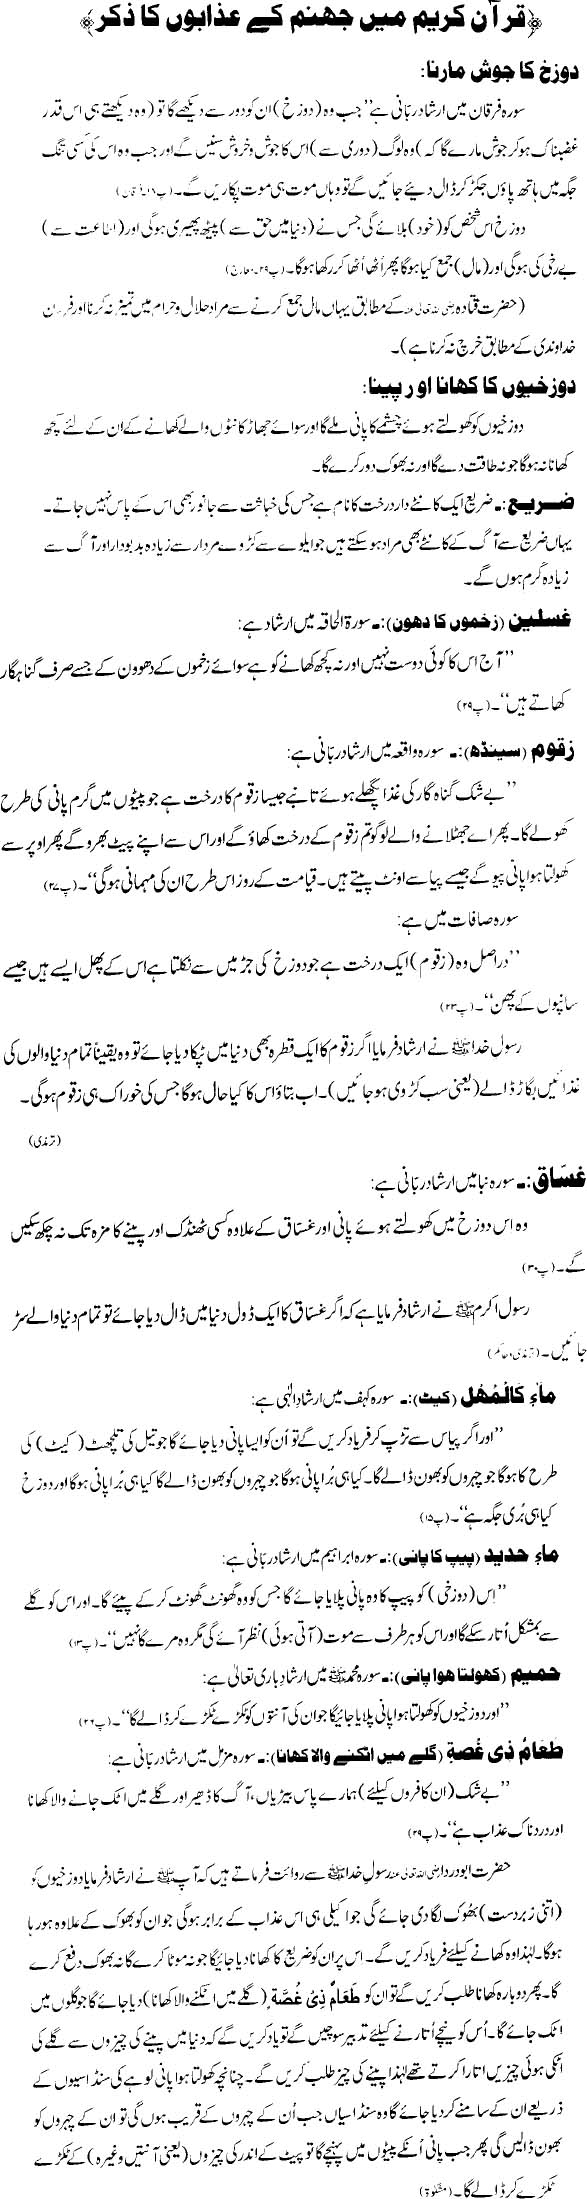 ﴿قرآن کریم میں جهنم کے عذابوں کا ذکر﴾
دوزخ کا جوش مارنا:
سورہ فرقان میں ارشاد ربانی ہے "جب وہ (دوزخ) ان کو دور سے دیکھے گا تو (وہ دیکھتے ہی اس قدر
غضبناک ہو کر جوش مارے گا کہ) وہ لوگ (دوری سے) اس کا جوش و خروش سنیں گے اور جب وہ اس کی کسی تنگ
جگہ میں ہاتھ پاؤں جکڑ کر ڈال دیئے جائیں گے تو وہاں موت ہی موت پکاریں گے۔ (پ۱۸
دوزخ اس شخص کو (خود) بلائے گی جس نے (دنیا میں حق سے) پیٹھ پھیری ہو گی اور (اطاعت سے)
بے رخی کی ہو گی اور (مال) جمع کیا ہو گا پھر اُٹھا اُٹھا کر رکھا ہو گا۔ (پ۲۹۔معارج)
(حضرت قتادہ رضی اللہ تعالیٰ عنہ کے مطابق یہاں مال جمع کرنے سے مراد حلال و حرام میں تمیز نہ کرنا اور فرمان
خداوندی کے مطابق خرچ نہ کرنا ہے)۔
دوزخیوں کا کھانا اور پینا:
دوزخیوں کو کھولتے ہوئے چشمے کا پانی ملے گا اور سوائے جھاڑ کانٹوں والے کھانے کے ان کے لئے کچھ
کھانا نہ ہو گا جو نہ طاقت دے گا اور نہ بھوک دور کرے گا۔
ضریع:۔ ضریع ایک کانٹے دار درخت کا نام ہے جس کی خباثت سے جانور بھی اس کے پاس نہیں جاتے۔
یہاں ضریع سے آگ کے کانٹے بھی مراد ہو سکتے ہیں جو ایلوے سے کڑوے مردار سے زیادہ بدبودار اور آگ سے
زیادہ گرم ہوں گے۔
غسلین (زخموں کا دھون):۔ سورۃ الحاقہ میں ارشاد ہے:
"آج اس کا کوئی دوست نہیں اور نہ کچھ کھانے کو ہے سوائے زخموں کے دھوون کے جسے صرف گناہگار
کھاتے ہیں"۔ (پ۲۹)
زقوم (سینڈھ):۔ سورہ واقعہ میں ارشاد ربانی ہے:
"بے شک گناہ گار کی غذا پگھلے ہوئے تانبے جیسا زقوم کا درخت ہے جو پیٹوں میں گرم پانی کی طرح
کھولے گا۔ پھر اے جھٹلانے والے لوگو تم زقوم کے درخت کھاؤ گے اور اس سے اپنے پیٹ بھرو گے پھر اوپر سے
کھولتا ہوا پانی پیو گے جیسے پیاسے اونٹ پیتے ہیں۔ قیامت کے روز اس طرح ان کی مہمانی ہو گی"۔ (پ۲۷)
سورہ صافات میں ہے:
"دراصل وہ (زقوم) ایک درخت ہے جو دوزخ کی جڑ میں سے نکلتا ہے اس کے پھل ایسے ہیں جیسے
سانپوں کے پھن"۔ (پ۲۳)
رسول خدا ﷺ نے ارشاد فرمایا اگر زقوم کا ایک قطرہ بھی دنیا میں ٹپکا دیا جائے تو وہ یقیناً تمام دنیا والوں کی
غذائیں بگاڑ ڈالے (یعنی سب کڑوی ہو جائیں)۔ اب بتاؤ اس کا کیا حال ہو گا جس کی خوراک ہی زقوم ہو گی۔
(ترمذی)
غسّاق:۔ سورہ نبا میں ارشاد ربانی ہے:
وہ اس دوزخ میں کھولتے ہوئے پانی اور غسّاق کے علاوہ کسی ٹھنڈک اور پینے کا مزہ تک نہ چکھ سکیں
گے۔ (پ۳۰)
رسول اکرم ﷺ نے ارشاد فرمایا ہے کہ اگر غسّاق کا ایک ڈول دنیا میں ڈال دیا جائے تو تمام دنیا والے سڑ
جائیں۔ (ترمذی و حاکم)
ماءِ کَالۡمُهۡل (کیٹ):۔ سورہ کہف میں ارشاد الٰہی ہے:
"اور اگر پیاس سے تڑپ کر فریاد کریں گے تو اُن کو ایسا پانی دیا جائے گا جو تیل کی تلچھٹ (کیٹ) کی
طرح کا ہو گا جو چہروں کو بھون ڈالے گا۔ کیا ہی بُرا پانی ہو گا جو چہروں کو بھون ڈالے گا کیا ہی بُرا پانی ہو گا اور دوزخ
کیا ہی بُری جگہ ہے"۔ (پ۱۵)
ماءِ حدید (پیپ کا پانی):۔ سورہ ابراہیم میں ارشاد ربانی ہے:
"اِس (دوزخی) کو پیپ کا وہ پانی پلایا جائے گا جس کو وہ گھونٹ گھونٹ کر کے پیئے گا۔ اور اس کو گلے
سے بمشکل اُتار سکے گا اور اس کو ہر طرف سے موت (آتی ہوئی) نظر آئے گی مگر وہ مرے گا نہیں"۔ (پ۱۳)
حمیم (کھولتا ھوا پانی):۔ سورہ محمد ﷺ میں ارشاد باری تعالیٰ ہے:
"اور دوزخیوں کو کھولتا ہوا پانی پلایا جائیگا جو ان کی آنتوں کو ٹکڑے ٹکڑے کر ڈالے گا"۔ (پ۲۶)
طَعَامُ ذِی غُصّةِ (گلے میں اٹکنے والا کھانا):۔ سورہ مزمل میں ارشاد ربانی ہے:
"بے شک (ان کافروں کیلئے) ہمارے پاس بیڑیاں، آگ کا ڈھیر اور گلے میں اٹک جانے والا کھانا
اور دردناک عذاب ہے"۔ (پ۲۹)
حضرت ابودردا رضی اللہ تعالیٰ عنہ رسول خدا ﷺ سے روائت فرماتے ہیں کہ آپ ﷺ نے ارشاد فرمایا دوزخیوں کو
(اتنی زبردست) بھوک لگا دی جائے گی جو اکیلی ہی اس عذاب کے برابر ہو گی جو ان کو بھوک کے علاوہ ہو رہا
ہو گا۔ لہٰذا وہ کھانے کیلئے فریاد کریں گے۔ اس پر ان کو ضریع کا کھانا دیا جائیگا جو نہ موٹا کرے گا نہ بھوک دفع کرے
گا۔ پھر دوبارہ کھانا طلب کریں گے تو ان کو طَعَامُ ذِیۡ غُصَّة (گلے میں اٹکنے والا کھانا) دیا جائے گا جو گلوں میں
اٹک جائے گا۔ اُس کو نیچے اُتارنے کیلئے تدبیر سوچیں گے تو یاد کریں گے کہ دنیا میں پینے کی چیزوں سے گلے کی
اٹکی ہوئی چیزیں اتارا کرتے تھے لہٰذا پینے کی چیز طلب کریں گے۔ چنانچہ کھولتا ہوا پانی لوہے کی سنڈاسیوں کے
ذریعے ان کے سامنے کر دیا جائے گا وہ سنڈاسیاں جب اُن کے چہروں کے قریب ہوں گی تو ان کے چہروں کو
بھون ڈالیں گی پھر جب پانی اُنکے پیٹوں میں پہنچے گا تو پیٹ کے اندر کی چیزوں (یعنی آنتیں وغیرہ) کے ٹکڑے
ٹکڑے کر ڈالے گا۔ (مشکوٰۃ)